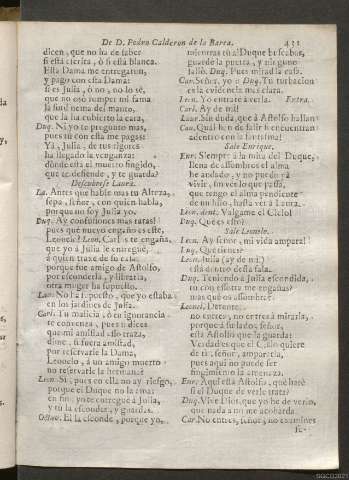 De D. Pedro Calderon de la Barca. 431
dicen, que no ha de saber
si está cierta, ò si está blanca.
Esta Dama me entregaron,
y pago con esta Dama:
si es Julia, ò no, no lo sè,
que no osò romper mi fama
la funda del manto,
que la ha cubierto la cara,
Duq. Ni yo te pregunto mas,
pues tù con esta me pagas:
Yà, Julia, de tus rigores
ha llegado la venganza:
dònde està el muerto fingido,
que te defiende, y te guarda?
Descubrese Laura.
La. Antes que hable mas tu Alteza,
sepa, señor, con quien habla,
porque no soy Julia yo.
Duq. Ay confusiones mas raras!
pues què nuevo engaño es este,
Leonelo? Leon. Carlos te engaña,
que yo à Julia le entreguè,
à quien traxe de su casa
porque fue amigo de Astolfo,
por esconderla, y librarla,
otra muger ha supuesto.
Lau. No ha supuesto, que yo estaba
en los jardines de Julia.
Carl. Tu malicia, ò tu ignorancia
te convenza, pues si dices
que mi amistad esso traza,
dime, si fuera amistad,
por reservarle la Dama,
Leonelo, à un amigo muerto
no reservarle la hermana?
Leon. Si, pues en ella no ay riesgo,
porque el Duque no la ama:
en fin, yo te entreguè à Julia,
y tu la esconder, y guardas.
Octav. El la esconde, porque yo,
mientras el Duque buscaba,
guardè la puerta, y ninguno
saliò. Duq. Pues mirad la casa.
Car. Señor, yo Duq. Tu turbacion
es la evidencia mas clara.
Leon. Yo entrarè à verla. Entra.
Carl. Ay de mi!
Laur. Sin duda, que à Astolfo hallan
Cau. Què han de salir si encuentran
adentro con la fantasma!
Sale Enrique.
Enr. Siempre à la mira del Duque,
llena de assombros el alma
he andado, y no puedo yà
vivir, sin vèr lo que passa,
que tengo el alma pendiente
de un hilo, hasta vèr à Laura.
Leon. dent. Valgame el Cielo!
Duq. Què es esso?
Sale Leonelo.
Leon. Ay señor, mi vida ampara!
Duq. Què tienes?
Leon. Julia (ay de mi)
està dentro de essa sala.
Duq. Teniendo à Julia escondida,
tù con essotra me engañas?
mas què os assombra?
Leonel. Detente,
no entres, no entres à mirarla,
porque à su lado, señor,
està Astolfo que la guarda:
Verdad es que el Cielo quiere
de ti, señor, ampararla,
pues aqui no puede ser
fingimiento la amenaza.
Enr. Aqui està Astolfo, què harè
si el Duque de verle trata?
Duq. Vive Dios, que yo he de verlo,
que nada à mi me acobarda.
Car. No entres, señor, no examines
se-